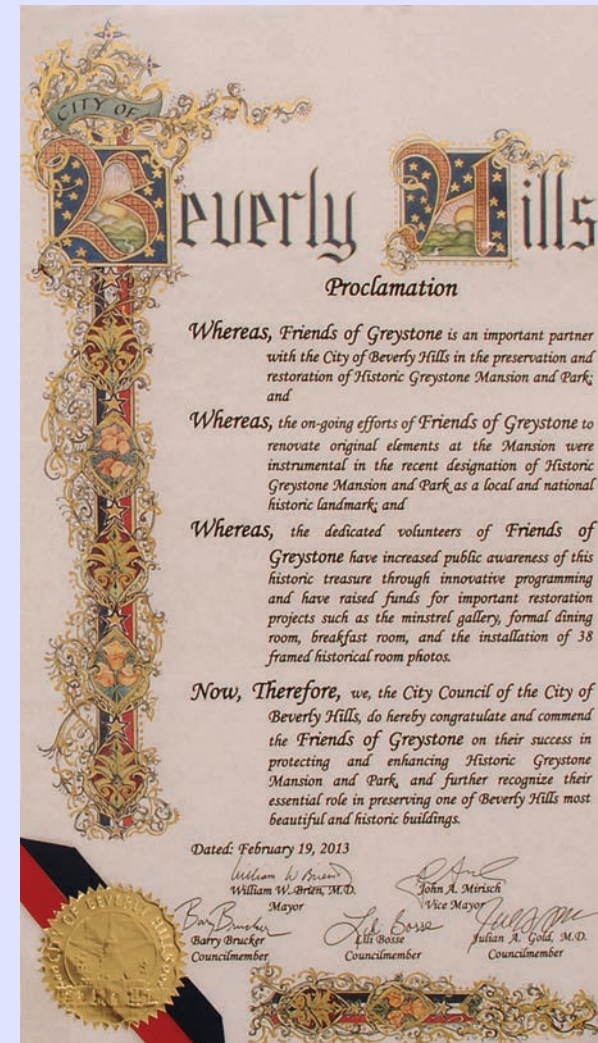 CITY OF
Beverly Hills
Proclamation
Whereas, Friends of Greystone is an important partner
with the City of Beverly Hills in the preservation and
restoration of Historic Greystone Mansion and Park;
and
Whereas, the on-going efforts of Friends of Greystone to
renovate original elements at the Mansion were
instrumental in the recent designation of Historic
Greystone Mansion and Park as a local and national
historic landmark; and
Whereas, the dedicated volunteers of Friends of
Greystone have increased public awareness of this
historic treasure through innovative programming
and have raised funds for important restoration
projects such as the minstrel gallery, formal dining
room, breakfast room, and the installation of 38
framed historical room photos.
Now, Therefore, we, the City Council of the City of
Beverly Hills, do hereby congratulate and commend
the Friends of Greystone on their success in
protecting and enhancing Historic Greystone
Mansion and Park, and further recognize their
essential role in preserving one of Beverly Hills most
beautiful and historic buildings.
Dated: February 19, 2013
William W. Brien, M.D.
Mayor
John A. Mirisch
Vice Mayor
Barry Brucker
Councilmember
Lili Bosse
Councilmember
Julian A. Gold, M.D.
Councilmember
CITY OF BEVERLY HILLS